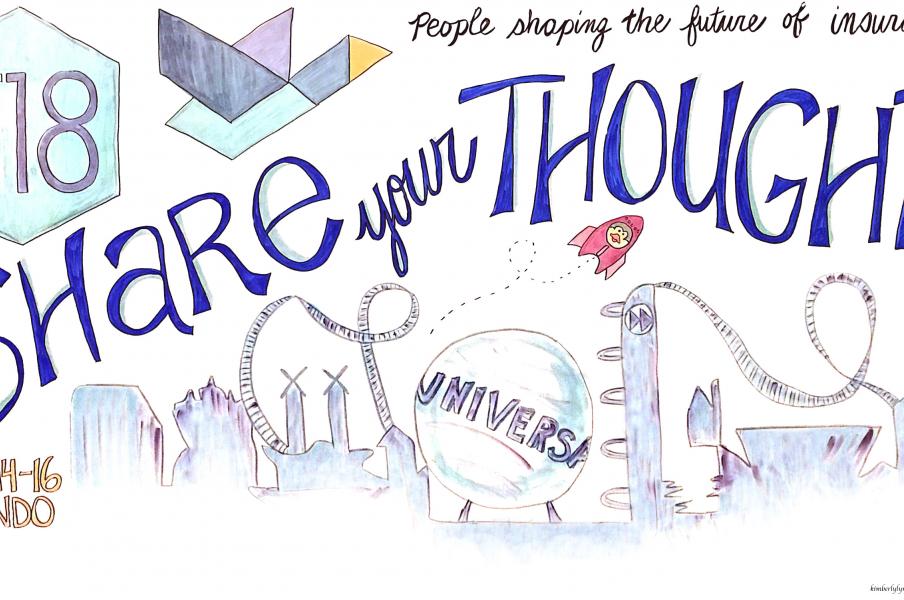 People shaping the future of insur
18
SHaRE your THOUGHT
UNIVERSA
4-16
NDO
kimberlyly